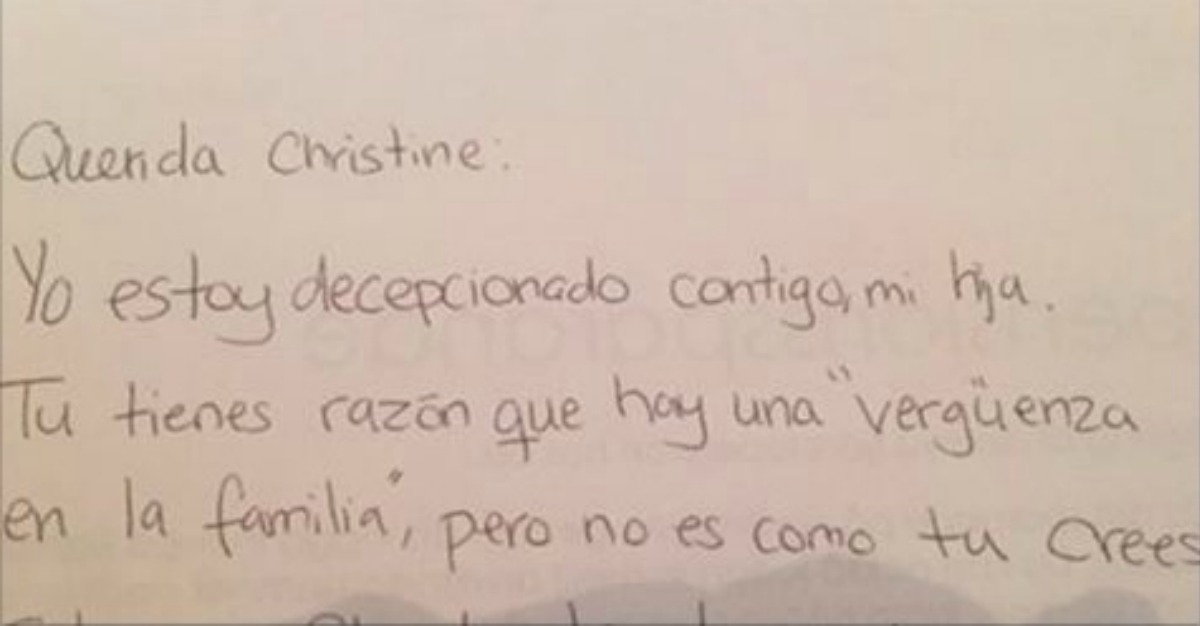 Querida Christine:
Yo estoy decepcionado contigo, mi hija.
Tu tienes razón que hay una "vergüenza
en la familia", pero no es como tu crees